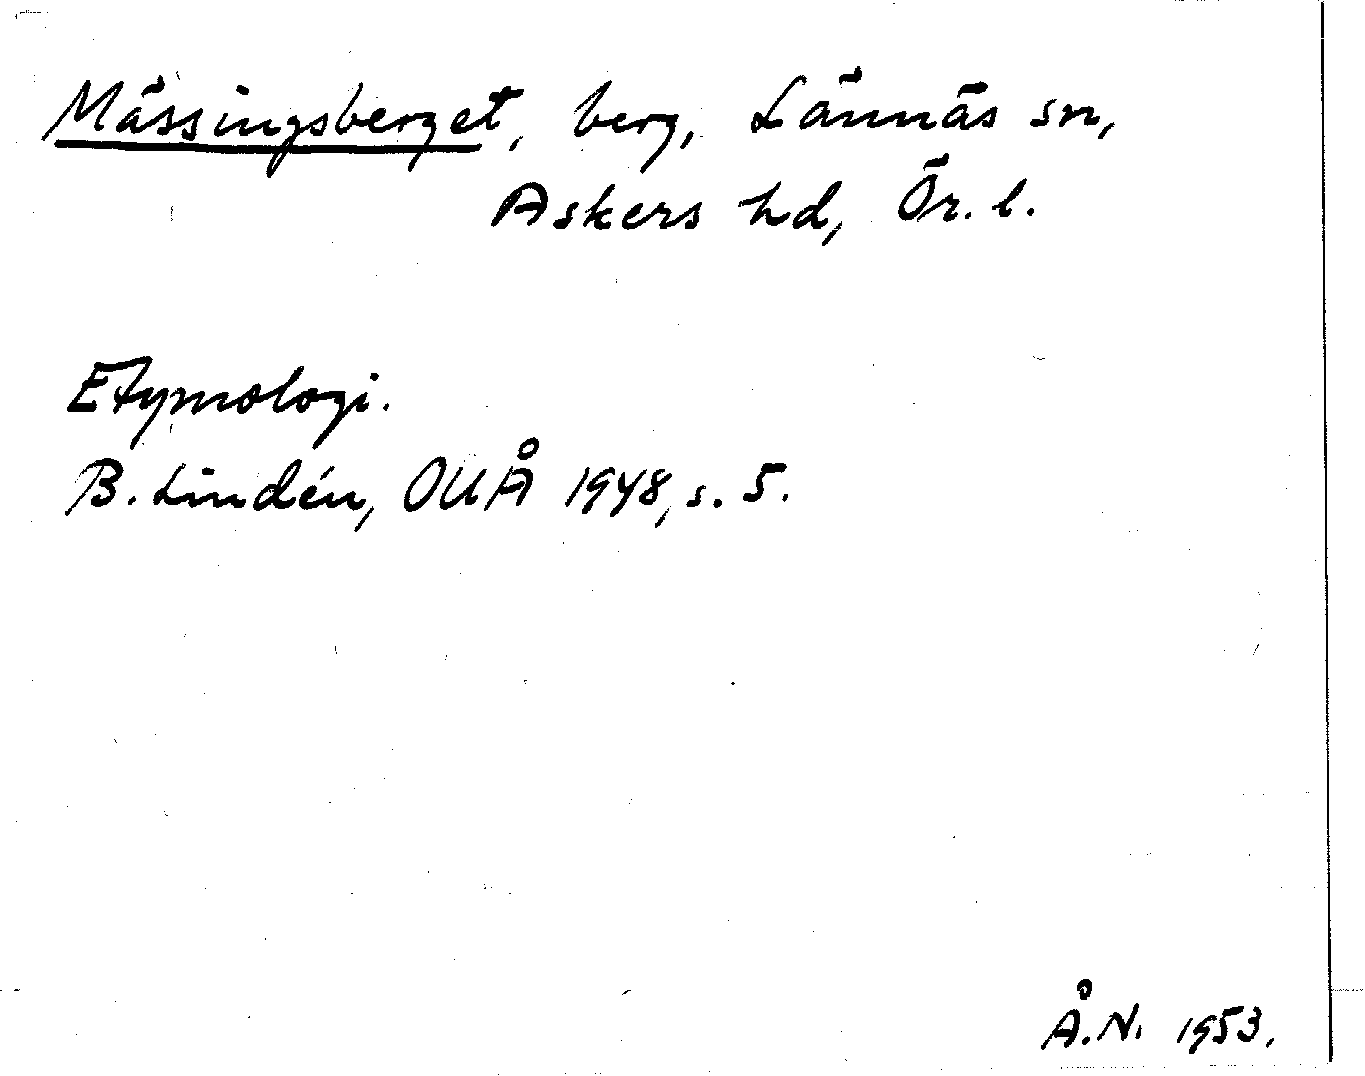 Mässingsberget, berg, Lännäs sn,
Askers hd, Ör. l.
Etymologi.
B. Lindén, OUÅ 1948, s. 5.
Å.N. 1953.